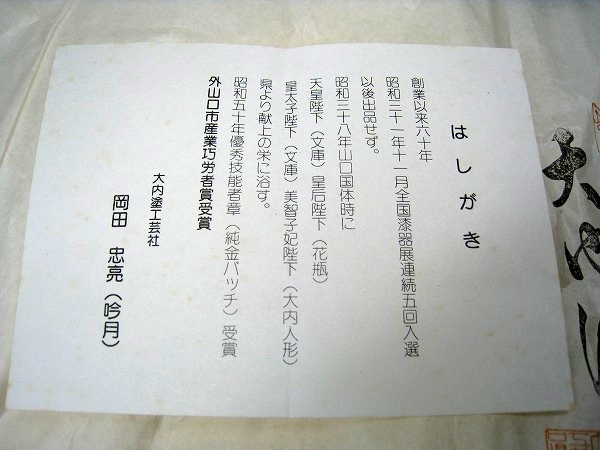 はしがき
創業以来六十年
昭和三十一年十一月全国漆器展連続五回入選
以後出品せず。
昭和三十八年山口国体時に
天皇陛下（文庫）皇后陛下（花瓶）
皇太子陛下（文庫）美智子妃陛下（大内人形）
県より献上の栄に浴す。
昭和五十年優秀技能者章（純金バッチ）受賞
外山口市産業巧労者賞受賞
大内塗工芸社
岡田 忠亮（吟月）
大内